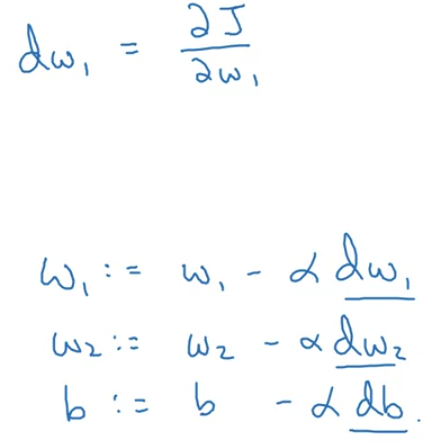 dw₁ = ∂J/∂w₁
w₁ := w₁ - α dw₁
w₂ := w₂ - α dw₂
b := b - α db.